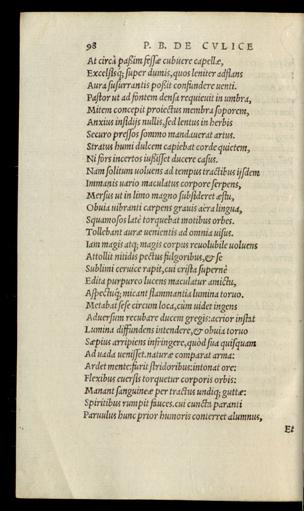 98 P. B. DE CVLICE
At circà paßim fessæ cubuere capellæ,
Excelsísq; super dumis, quos leniter adflans
Aura susurrantis poßit confundere uenti.
Pastor ut ad fontem densa requieuit in umbra,
Mitem concepit proiectus membra soporem,
Anxius insidijs nullis, sed lentus in herbis
Securo pressos somno mandauerat artus.
Stratus humi dulcem capiebat corde quietem,
Ni fors incertos iußisset ducere casus.
Nam solitum uoluens ad tempus tractibus ijsdem
Immanis uario maculatus corpore serpens,
Mersus ut in limo magno subsideret æstu,
Obuia uibranti carpens grauis aëra lingua,
Squamosos latè torquebat motibus orbes.
Tollebant auræ uenientis ad omnia uisus.
Iam magis atq; magis corpus reuolubile uoluens
Attollit nitidis pectus fulgoribus, & se
Sublimi ceruice rapit, cui crista supernè
Edita purpureo lucens maculatur amictu,
Aspectuq; micant flammantia lumina toruo.
Metabat sese circum loca, cùm uidet ingens
Aduersum recubare ducem gregis: acrior instat
Lumina diffundens intendere, & obuia toruo
Sæpius arripiens infringere, quòd sua quisquam
Ad uada uenisset. naturæ comparat arma:
Ardet mente: furit stridoribus: intonat ore:
Flexibus euersis torquetur corporis orbis:
Manant sanguineæ per tractus undiq; guttæ:
Spiritibus rumpit fauces. cui cuncta paranti
Paruulus hunc prior humoris conterret alumnus,
Et